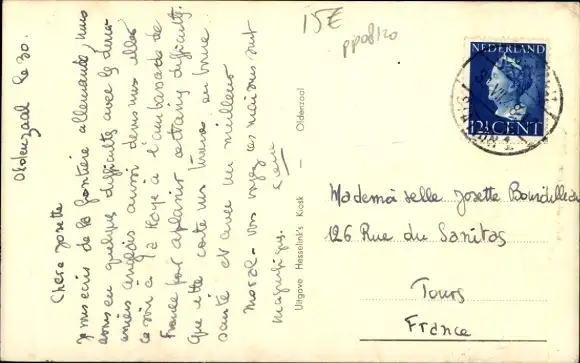 Oldenzaal le 30.
Chère Josette
Je vous écris de la frontière allemande, nous
avons eu quelques difficultés avec le
anglais aussi devons nous aller
ce soir à la Haye à l'ambassade de
France pour aplanir certains difficultés.
Que cette carte vous trouve en bonne
santé et avec un meilleur
moral - vos maisons sont
magnifiques.
15€
pp08/20
Uitgave Hesselink's Kiosk — Oldenzaal
NEDERLAND
12½ CENT
Mademoiselle Josette Bourdilleau
126 Rue du Sanitas
Tours
France